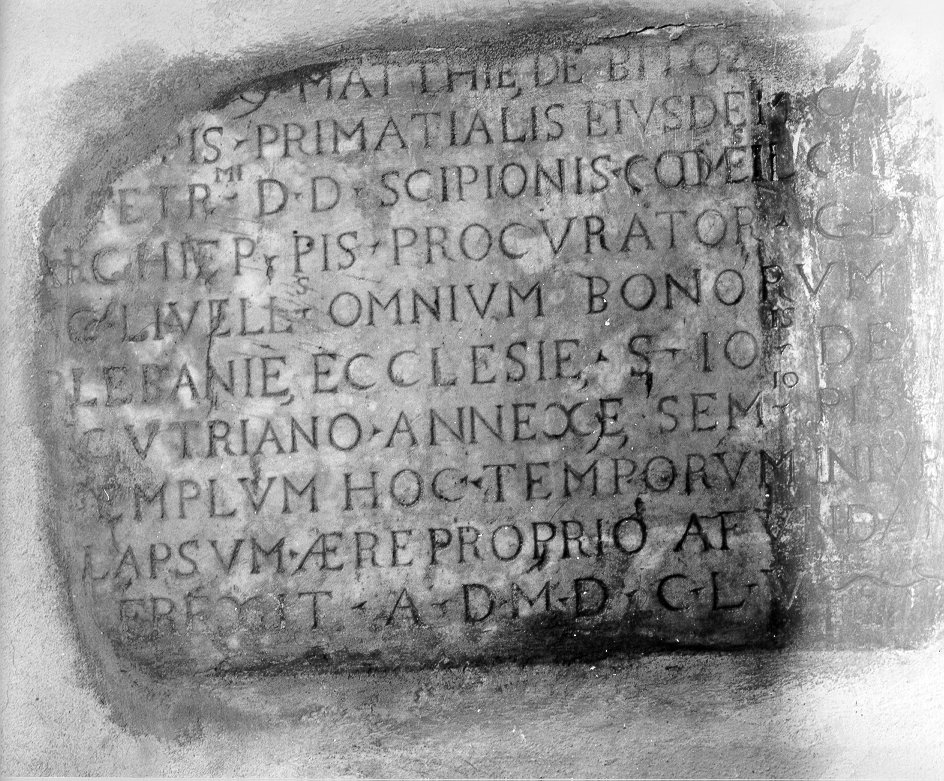 MATTHIĘ DE BITOZ
PIS · PRIMATIALIS EIVSDEM CA
PETR MI · D · D · SCIPIONIS ·
ARCHIEP · PIS · PROCVRATOR · GL
LIVELL S · OMNIVM BONORVM
PLEBANIĘ ECCLESIĘ · S · IO · DE
CVTRIANO · ANNEXĘ SEM IO · PIS
TEMPLVM HOC · TEMPORVM INIVR
LAPSVM · ÆRE PROPRIO A FVNDAM
EREXIT · A · D · M · D · C · L · V